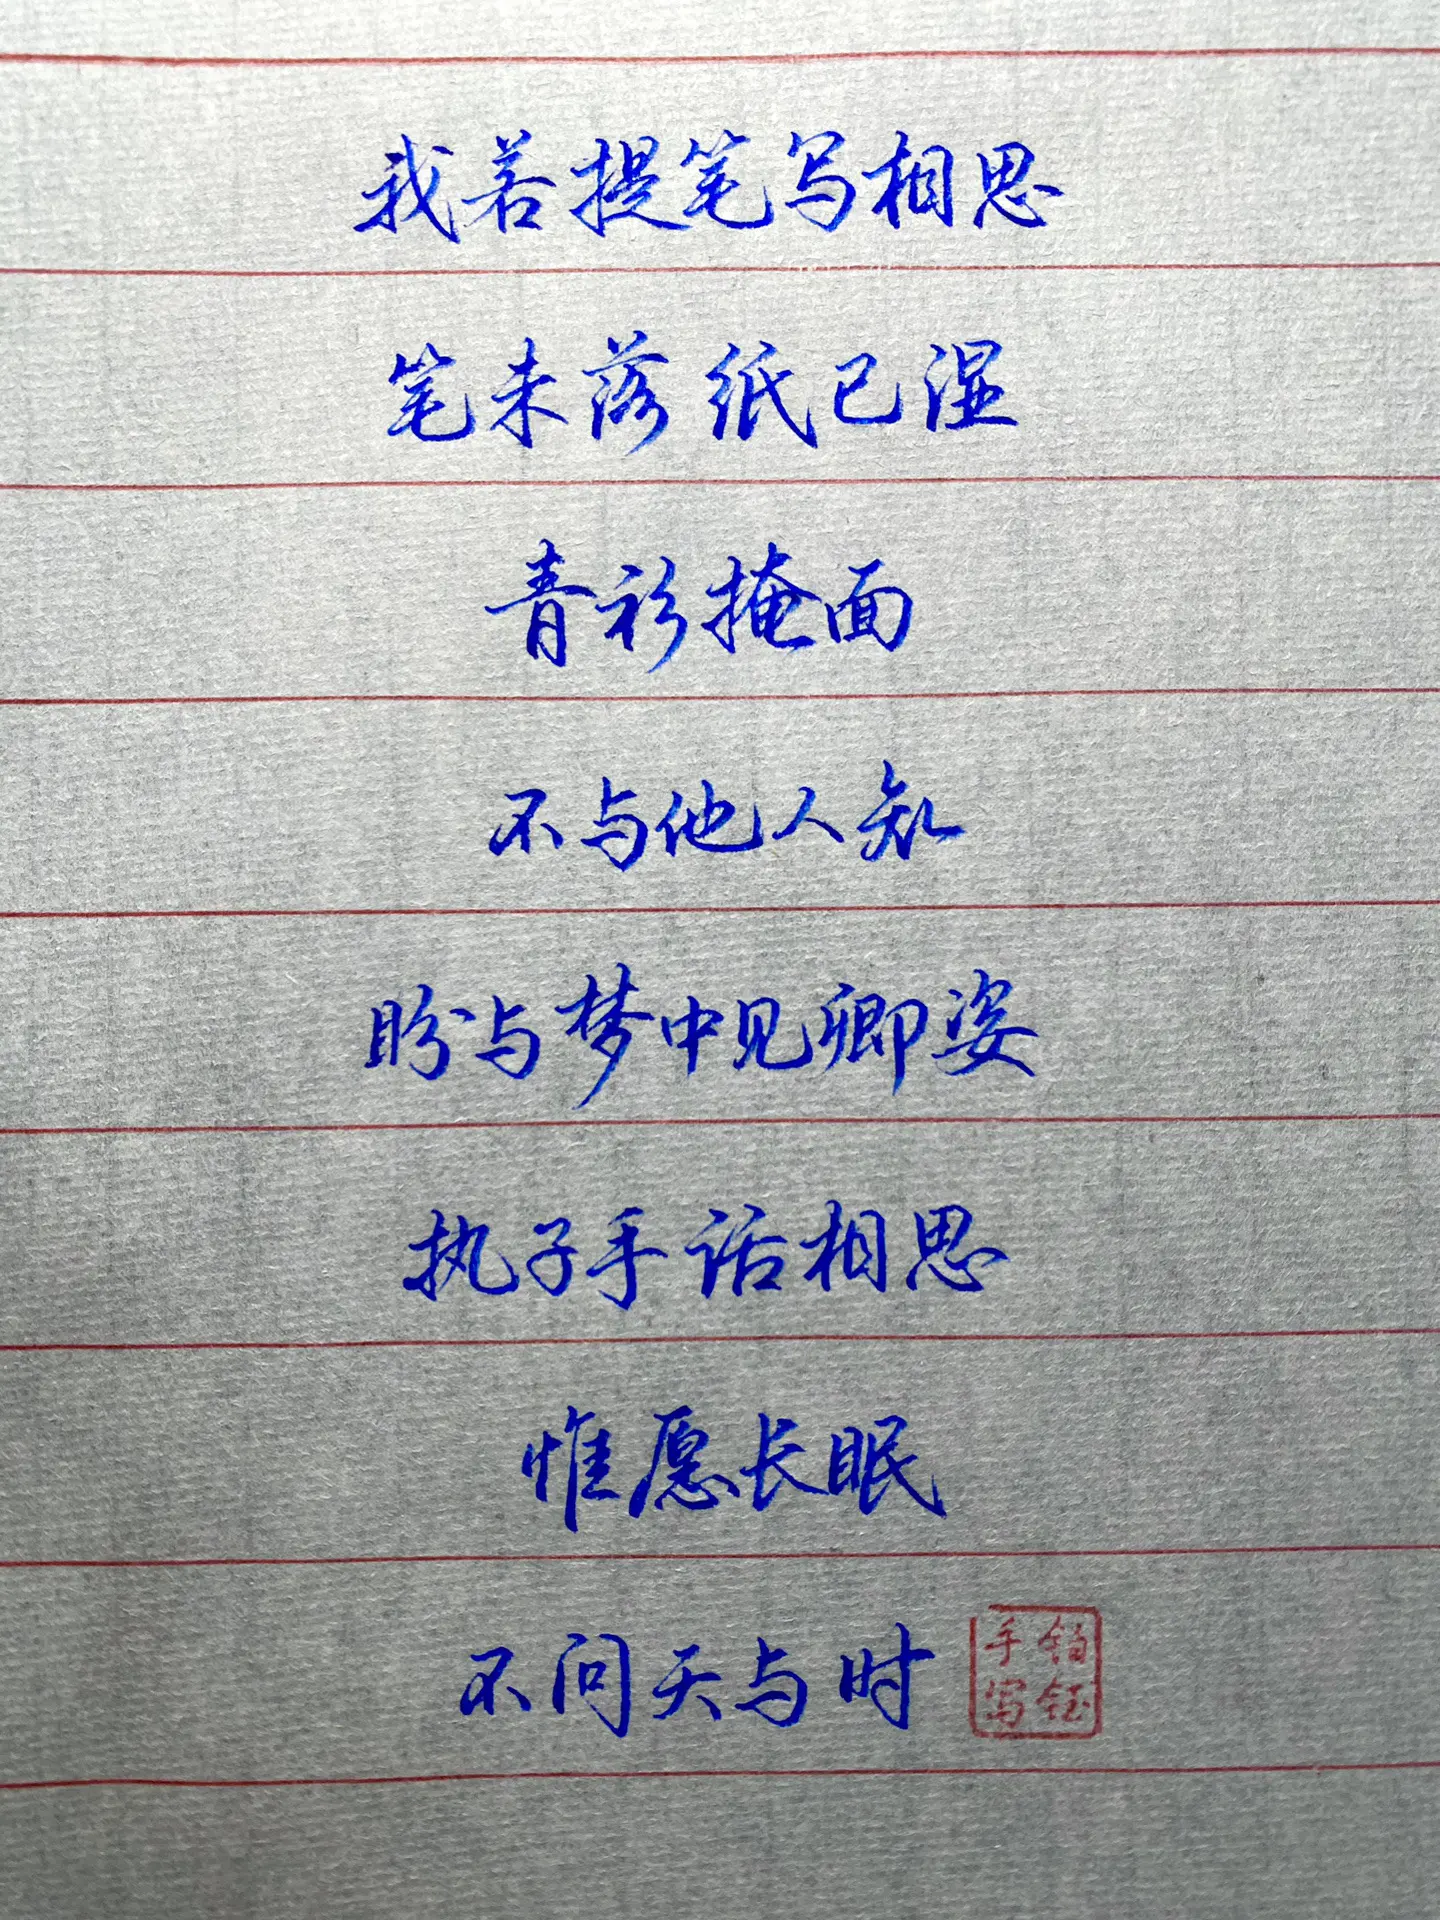 我若提笔写相思
笔未落纸已湿
青衫掩面
不与他人知
盼与梦中见卿姿
执子手话相思
惟愿长眠
不问天与时
铂钰
手写